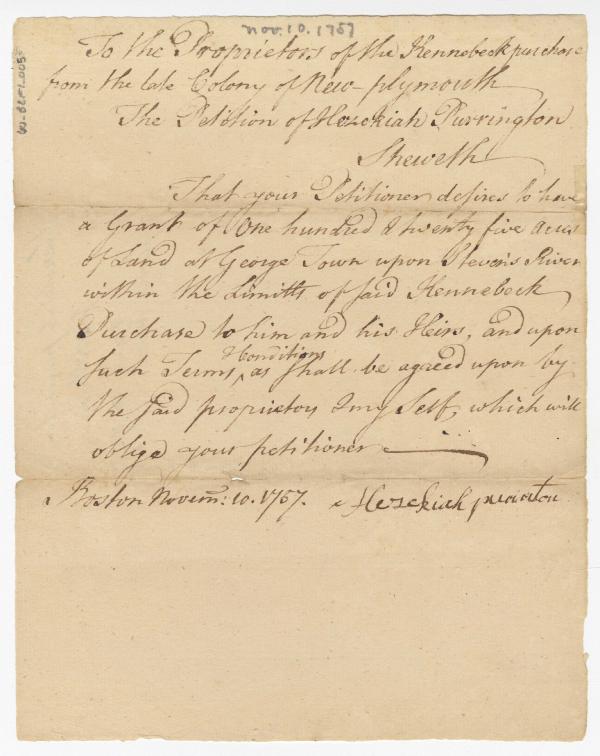 nov. 10. 1757
To the Proprietors of the Kennebeck purchase
from the late Colony of New-plymouth
The Petition of Hezekiah Purrington
Sheweth
That your Petitioner desires to have
a Grant of One hundred & twenty five acres
of Land at George Town upon Stevens River
within the Limitts of said Kennebeck
Purchase to him and his Heirs, and upon
&Conditions
such Terms ‸ as shall be agreed upon by
the said proprietors & my Self, which will
oblige your petitioner
Boston Novem: 10. 1757. Hezekiah